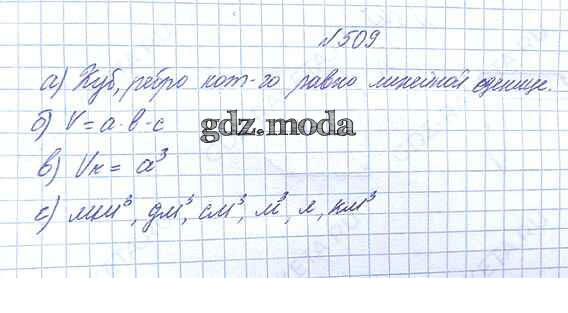 №509
а) Куб, ребро кот-го равно линейной единице.
б) V = a·b·c
gdz.moda
в) Vк = a³
г) мм³, дм³, см³, м³, л, км³